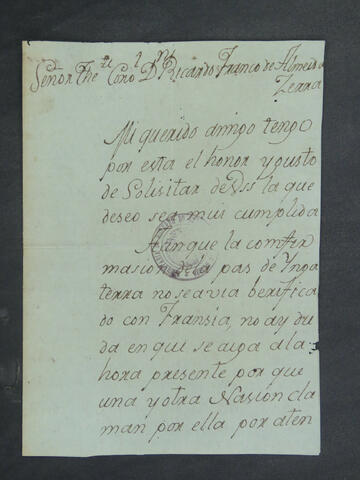 Señor The. Coro. Dn. Ricardo Franco de Almeida
Zerra
Mi querido amigo tengo
por esta el honor y gusto
de Solisitar de Vss la que
deseo sea mui cumplida
Aunque la comfir
masion de la pas de Ynga
terra no se avia berifica
do con Fransia, no ay du
da en que se aiga a la
hora presente por que
una y otra Nasion cla
man por ella por aten